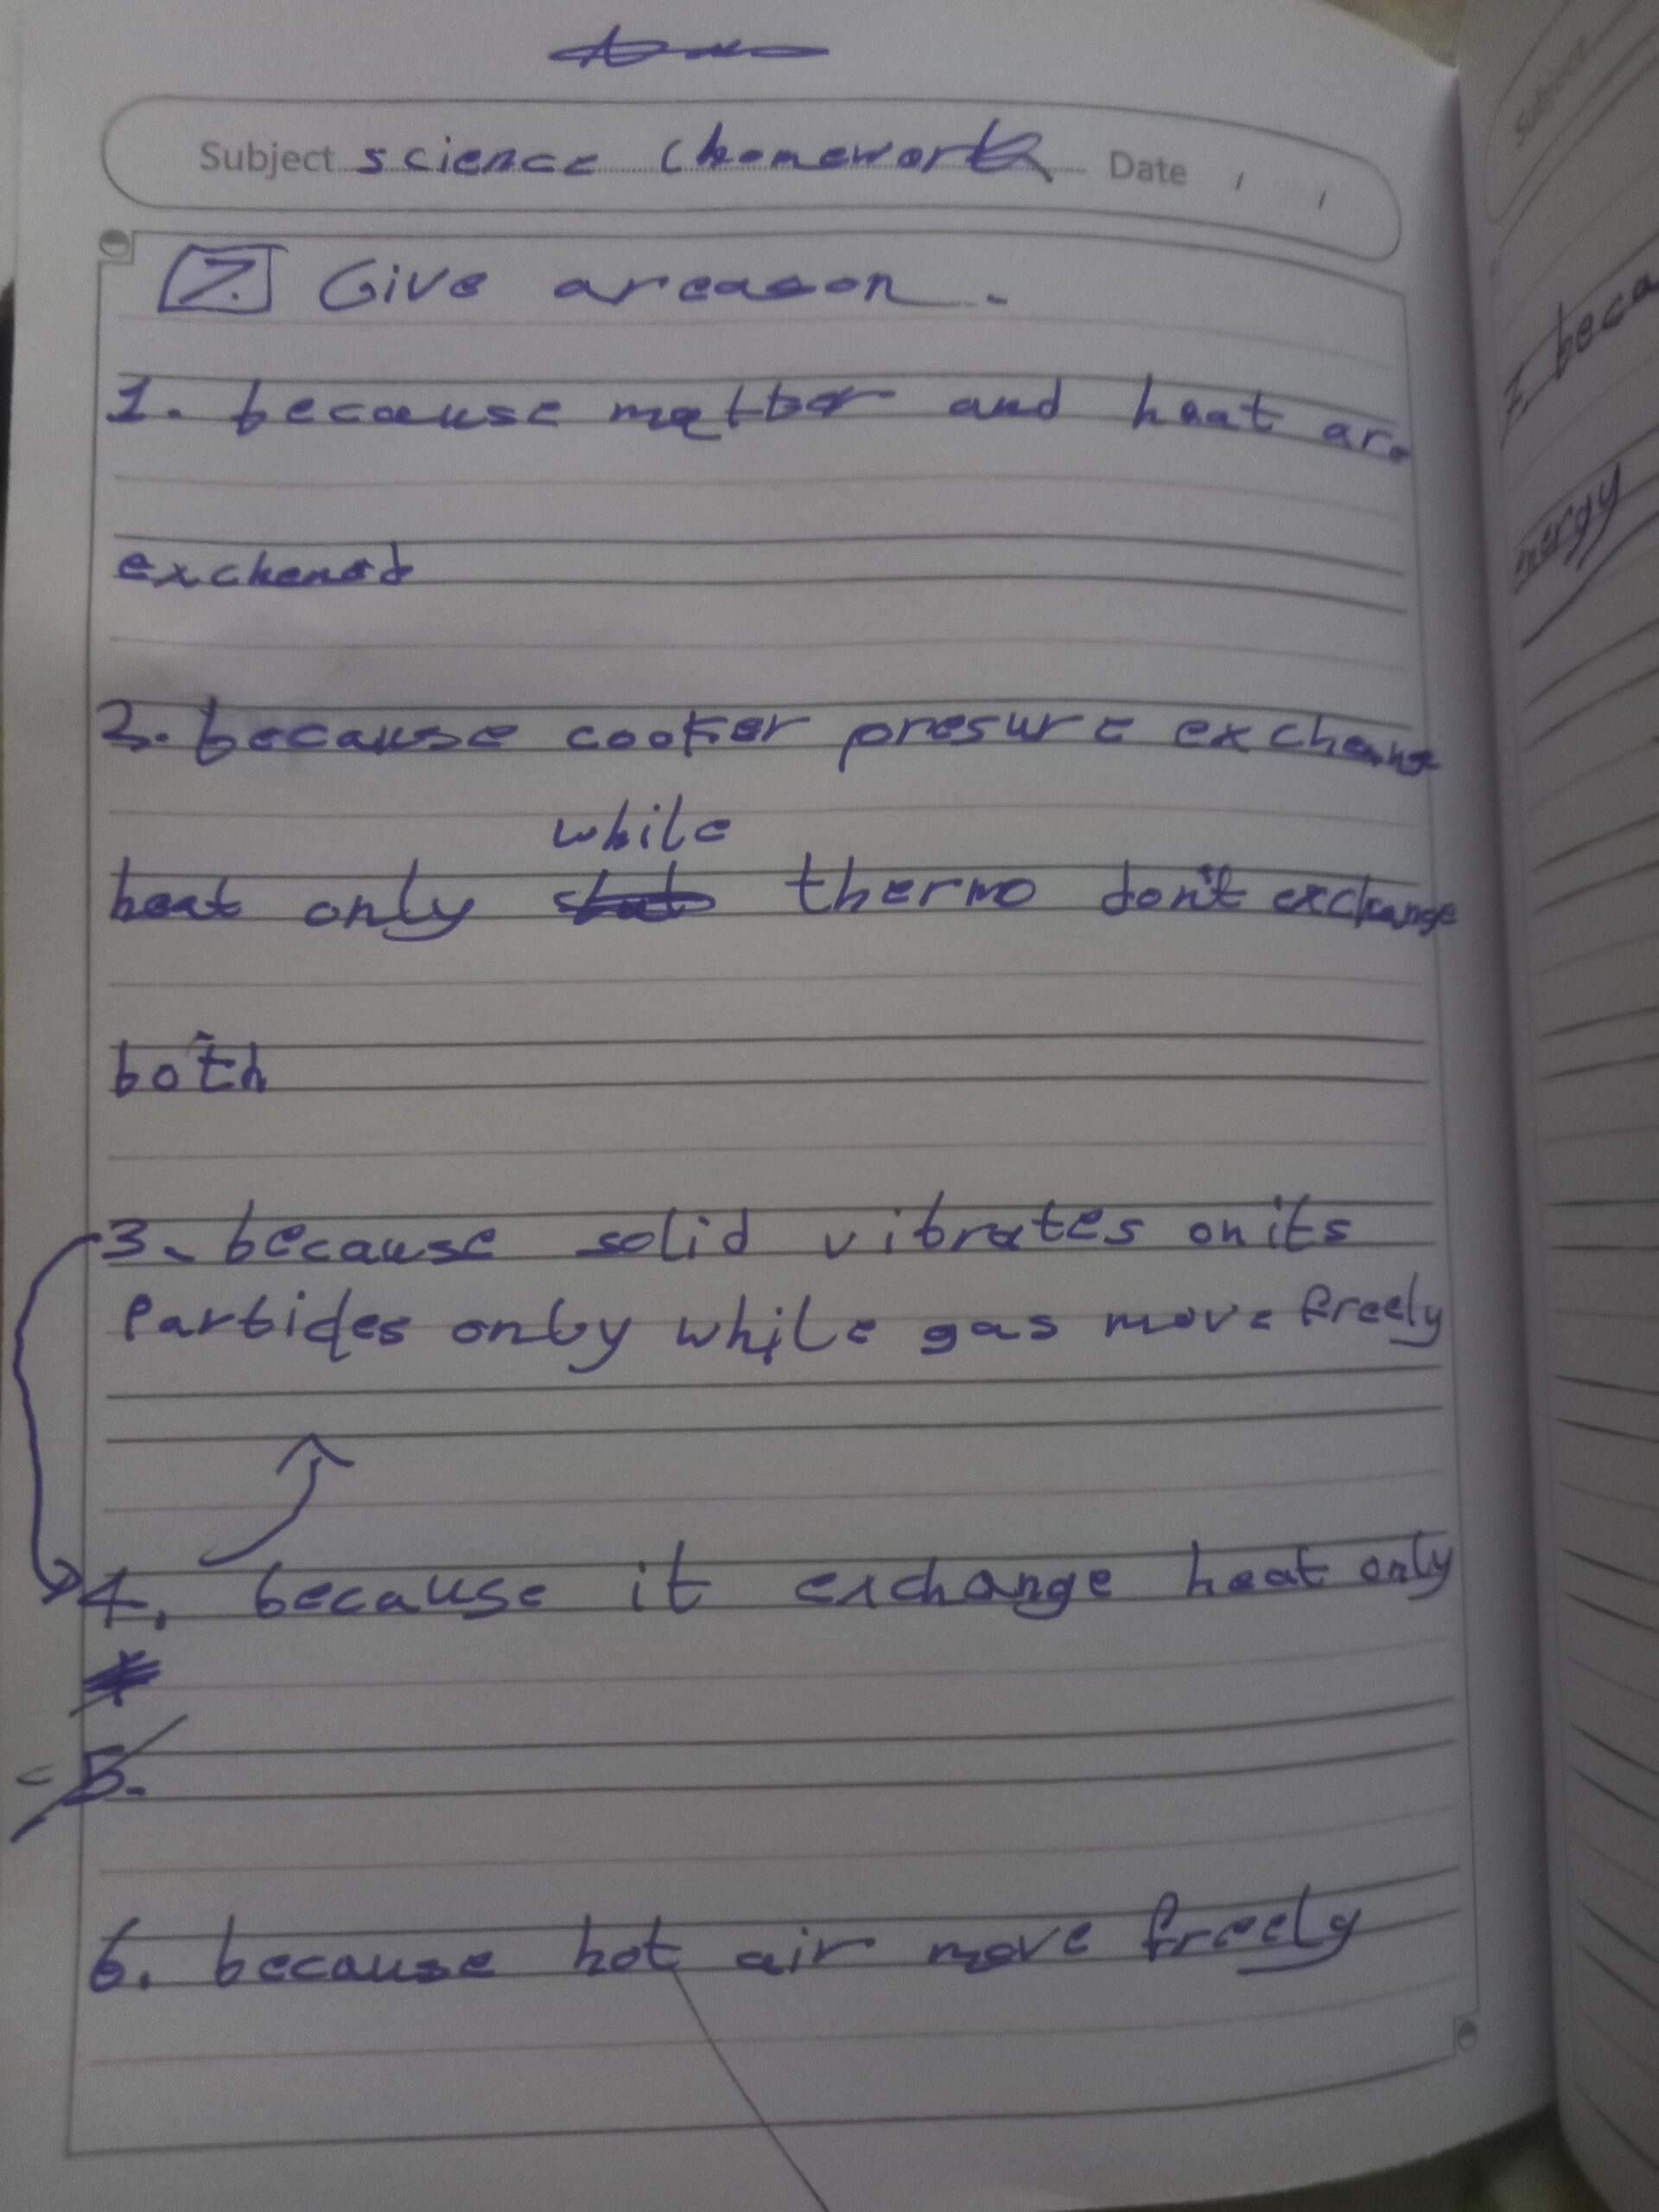 Subject science (homework Date / /
7. Give a reason.
1. because matter and heat are
exchened
2. because cooker presure exchange
while
heat only thermo don't exchange
both
3. because solid vibrates on its
Particles only while gas move freely
4. because it exchange heat only
5.
6. because hot air move freely
Subject
7. beca
energy